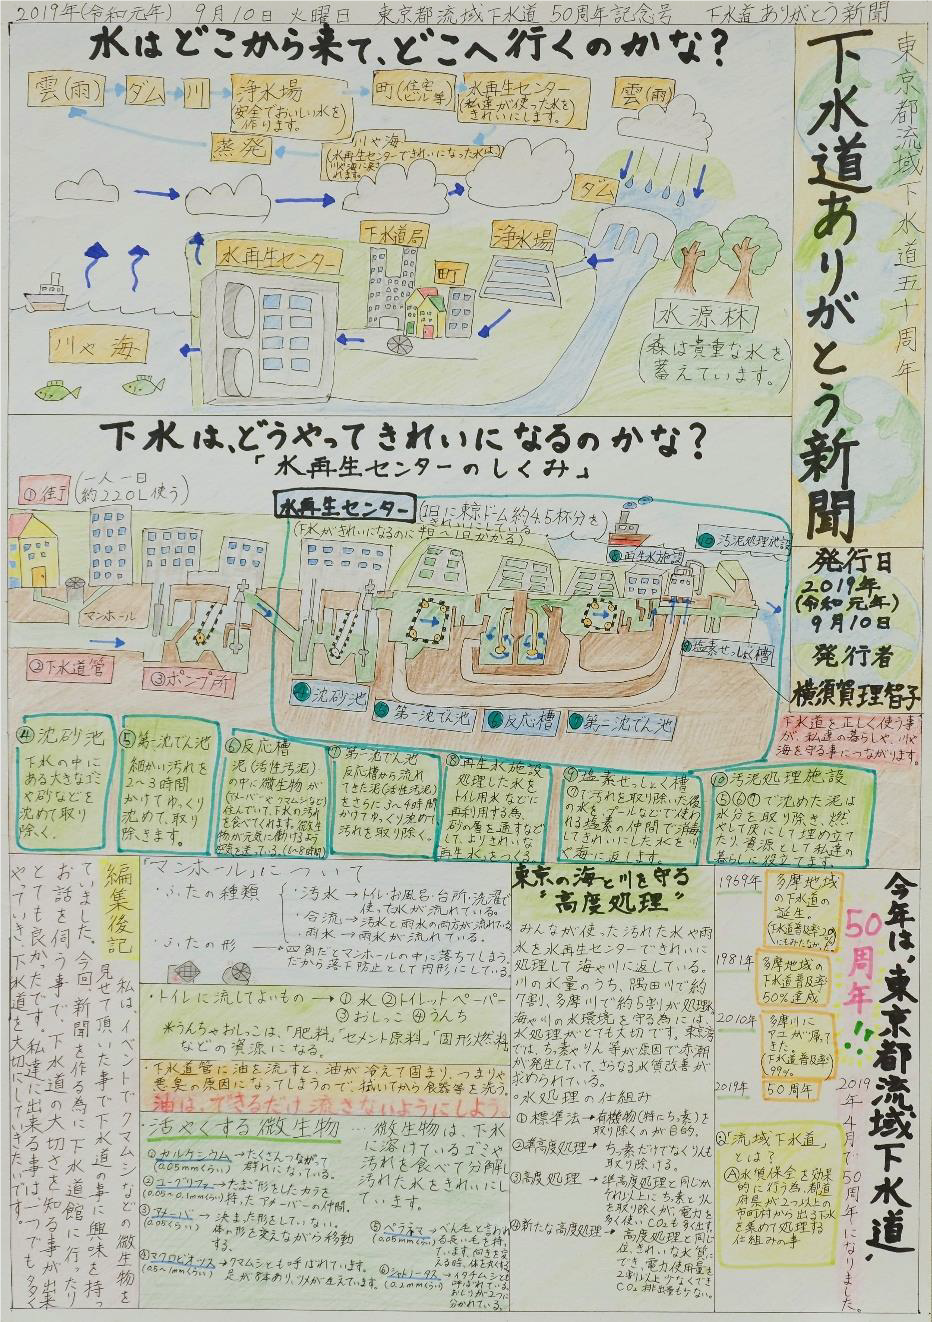 2019年(令和元年) 9月10日 火曜日 東京都流域下水道 50周年記念号 下水道ありがとう新聞
東京都流域下水道五十周年
下水道ありがとう新聞
発行日
2019年
(令和元年)
9月10日
発行者
横須賀理智子
下水道を正しく使う事
が、私達の暮らしや、川や
海を守る事につながります。
水はどこから来て、どこへ行くのかな?
雲(雨)
ダム
川
浄水場
(安全でおいしい水を
作ります。)
町(住宅
ビル等)
水再生センター
(私達が使った水を
きれいにします。)
川や海
(水再生センターできれいになった水は
蒸発
雲(雨)
ダム
浄水場
下水道局
町
水再生センター
川や海
水源林
(森は貴重な水を
蓄えています。)
下水は、どうやってきれいになるのかな?
「水再生センターのしくみ」
①街(一人一日
約220L使う)
水再生センター
(1日に東京ドーム約4.5杯分を
きれいにしている)
マンホール
②下水道管
③ポンプ所
④沈砂池
⑤第一沈でん池
⑥反応槽
⑦第二沈でん池
⑧再生水施設
⑨塩素せっしょく槽
⑩汚泥処理施設
④沈砂池
下水の中に
ある大きなゴミ
や砂などを
沈めて取り
除く。
⑤第一沈でん池
細かい汚れを
2~3時間
かけてゆっくり
沈めて、取り
除きます。
⑥反応槽
泥(活性汚泥)
の中に微生物が
(アメーバやクマムシなど)
住んでいて、下水の汚れ
を食べてくれます。微生
物が元気に働けるよう
空気を送っている。(6~8時間)
⑦第二沈でん池
反応槽から流れ
てきた泥(活性汚泥)
をさらに3~4時間
かけてゆっくり沈めて
汚れを取り除く。
⑧再生水施設
処理した水を
トイレ用水などに
再利用する為、
砂の層を通すなど
して、よりきれいな
再生水をつくる
⑨塩素せっしょく槽
⑦で汚れを取り除いた後
の水を、プールなどで使わ
れる塩素の仲間で消毒
してきれいにした水を川
や海に返します。
⑩汚泥処理施設
⑤⑥⑦で沈めた泥は
水分を取り除き、燃
やして灰にして埋め立て
たり、資源として私達の
暮らしに役立てます。
編集後記
私は、イベントでクマムシなどの微生物を
見せて頂いた事で下水道の事に興味を持っ
ていました。今回、新聞を作る為に下水道館に行ったり
お話を伺う事で、下水道の大切さを知る事が出来
とても良かったです。私達に出来る事は一つでも多く
やっていき、下水道を大切にしていきたいです。
「マンホール」について
・ふたの種類
・汚水→トイレ・お風呂・台所・洗濯で
使った水が流れている。
・合流→汚水と雨水の両方が流れている。
・雨水→雨水が流れている。
・ふたの形
四角だとマンホールの中に落ちてしまう。
だから落下防止として円形にしている。
・トイレに流してよいもの→①水②トイレットペーパー
③おしっこ④うんち
*うんちやおしっこは、「肥料」「セメント原料」「固形燃料」
などの資源になる。
・下水道管に油を流すと、油が冷えて固まり、つまりや
悪臭の原因になってしまうので、拭いてから食器等を洗う
油は、できるだけ流さないようにしよう。
活やくする微生物
微生物は、下水
に溶けているゴミや
汚れを食べて分解し
汚れた水をきれいにし
ています。
(0.05mmくらい)
→たくさんつながって
群れになっている。
→たまご形をしたカラを
持ったアメーバーの仲間。
③アメーバ
(0.05くらい)
→決まった形をしていない。
体の形を変えながら移動
する。
④マクロビオツス
→クマムシとも呼ばれています。
足が8本あり、ツメが生えています。
東京の海と川を守る
"高度処理"
みんなが使った汚れた水や雨
水を水再生センターできれいに
処理して海や川に返している。
川の水量のうち、隅田川で約
7割、多摩川で約5割が処理水
海や川の水環境を守る為には、
水処理がとても大切です。東京湾
では、ちっ素やりん等が原因で赤潮
が発生していて、さらなる水質改善が
求められている。
○水処理の仕組み
①標準法→有機物(特にちっ素)を
取り除くのが目的。
②準高度処理→ちっ素だけでなくりんも
取り除ける。
③高度処理→準高度処理と同じか
それ以上にちっ素とりん
を取り除くが、電力を
多く使いCO₂も多く出す。
④新たな高度処理→高度処理と同じ
位、きれいな水質に
でき、電力使用量を
2割以上少なくでき
CO₂排出量も少ない。
今年は、東京都流域下水道、
50周年!!
2019年4月で50周年になりました。
1969年
多摩地域
の下水道の
誕生。
1981年
多摩地域の
下水道普及率
50%達成
2010年
多摩川に
アユが帰って
きた。
(下水道普及率
99%)
2019年
50周年
Q「流域下水道」
とは?
A水質保全を効果
的に行う為、都道
府県が2つ以上の
市町村から出る下水
を集めて処理する
仕組みの事